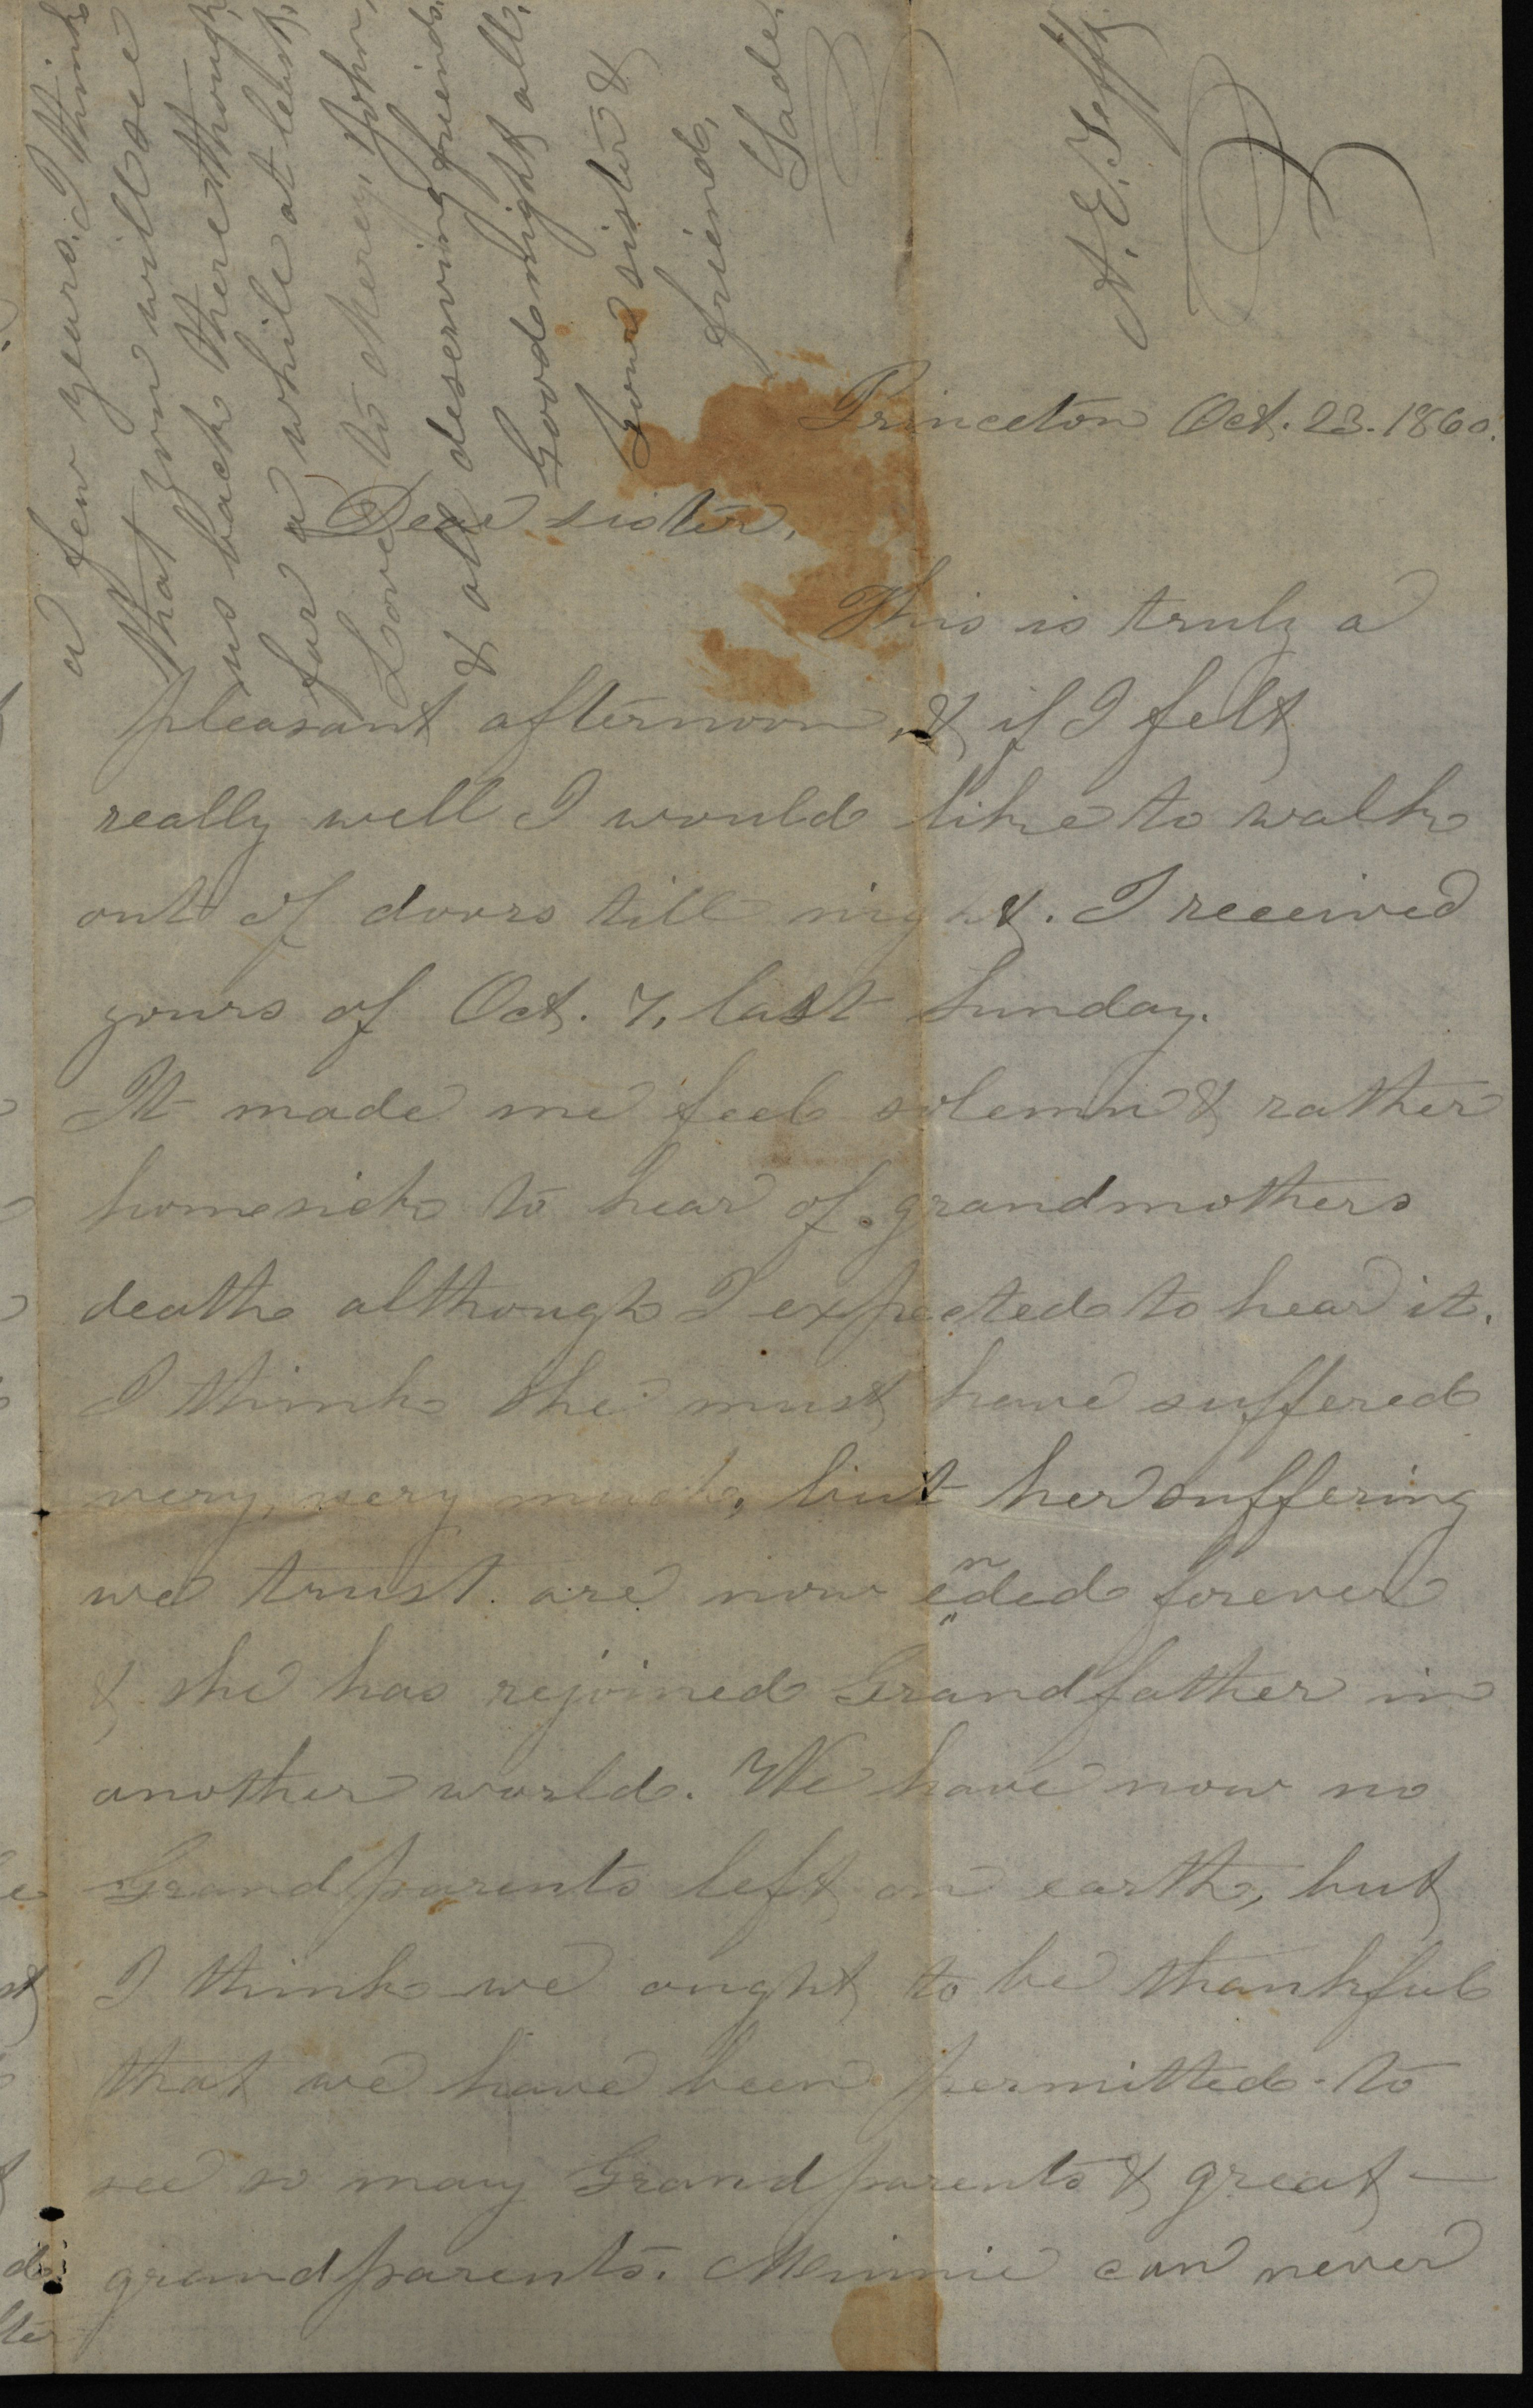 Princeton Oct. 23. 1860.
Dear sister,
This is truly a
pleasant afternoon, & if I felt
really well I would like to walk
out of doors till night. I received
yours of Oct. 7, last Sunday.
It made me feel solemn & rather
homesick to hear of grandmothers
death although I expected to hear it.
I think she must have suffered
very, very much, but her suffering
we trust are now ended forever
& she has rejoined Grandfather in
another world. We have now no
Grandparents left on earth, but
I think we ought to be thankful
that we have been permitted to
see so many Grandparents & great-
grandparents. Minnie can never
a few years. I think
that you will see
us back there though
for a while at least,
Love to Mercy, John,
& all deserving friends.
Good night all,
Your sister &
friend,
Sade.
A. E. Tefft